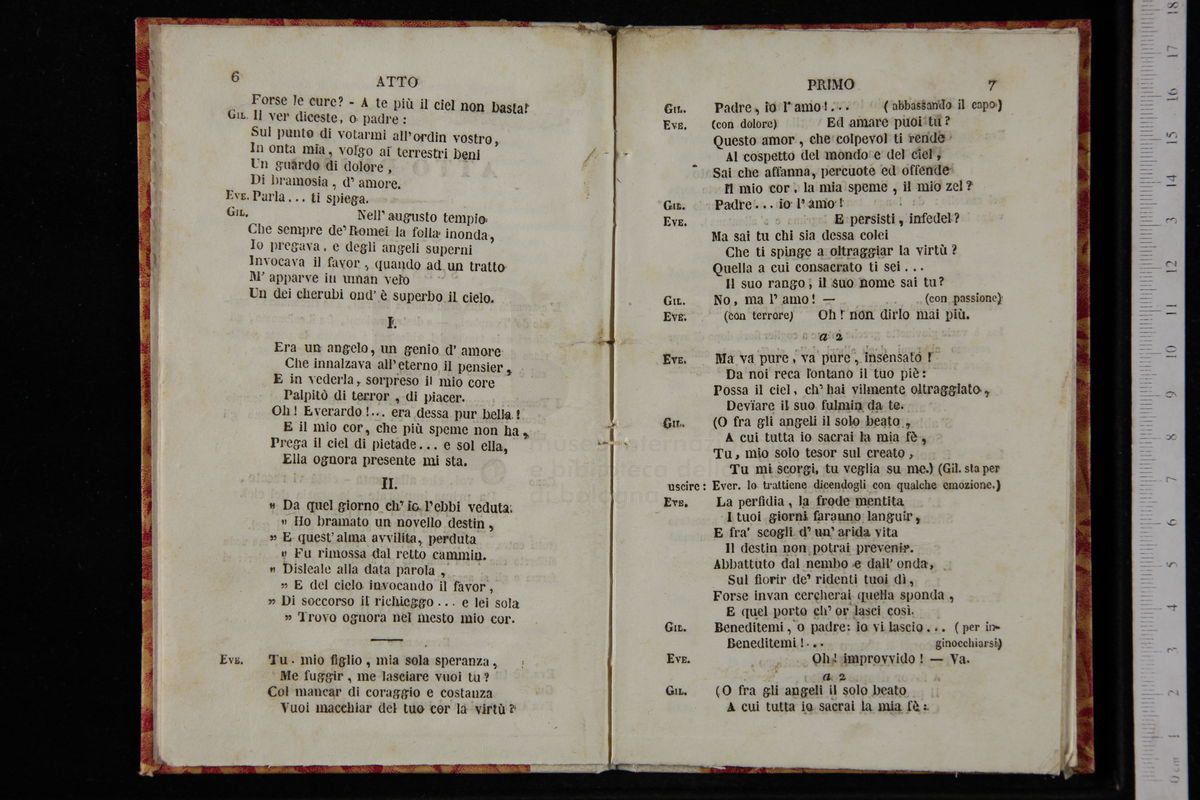 6
ATTO
Forse le cure? - A te più il ciel non basta?
GIL. Il ver diceste, o padre :
Sul punto di votarmi all' ordin vostro,
In onta mia, volgo ai terrestri beni
Un guardo di dolore,
Di bramosia, d' amore.
EVE. Parla... ti spiega.
GIL. Nell' augusto tempio
Che sempre de' Romei la folla inonda,
Io pregava, e degli angeli superni
Invocava il favor, quando ad un tratto
M' apparve in uman velo
Un dei cherubi ond' è superbo il cielo.
I.
Era un angelo, un genio d' amore
Che innalzava all' eterno il pensier,
E in vederla, sorpreso il mio core
Palpitò di terror, di piacer.
Oh! Everardo!... era dessa pur bella!
E il mio cor, che più speme non ha,
Prega il ciel di pietade... e sol ella,
Ella ognora presente mi sta.
II.
» Da quel giorno ch' io l' ebbi veduta,
» Ho bramato un novello destin,
» E quest' alma avvilita, perduta
» Fu rimossa dal retto cammin.
» Disleale alla data parola,
» E del cielo invocando il favor,
» Di soccorso il richieggo... e lei sola
» Trovo ognora nel mesto mio cor.
EVE. Tu, mio figlio, mia sola speranza,
Me fuggir, me lasciare vuoi tu?
Col mancar di coraggio e costanza
Vuoi macchiar del tuo cor la virtù?
PRIMO
7
GIL. Padre, io l' amo!... (abbassando il capo)
EVE. (con dolore) Ed amare puoi tu?
Questo amor, che colpevol ti rende
Al cospetto del mondo e del ciel,
Sai che affanna, percuote ed offende
Il mio cor, la mia speme, il mio zel?
GIL. Padre... io l' amo!
EVE. E persisti, infedel?
Ma sai tu chi sia dessa colei
Che ti spinge a oltraggiar la virtù?
Quella a cui consacrato ti sei...
Il suo rango, il suo nome sai tu?
GIL. No, ma l' amo! — (con passione)
EVE. (con terrore) Oh! non dirlo mai più.
a 2
EVE. Ma va pure, va pure, insensato!
Da noi reca lontano il tuo piè:
Possa il ciel, ch' hai vilmente oltraggiato,
Devïare il suo fulmin da te.
GIL. (O fra gli angeli il solo beato,
A cui tutta io sacrai la mia fè,
Tu, mio solo tesor sul creato,
Tu mi scorgi, tu veglia su me.) (Gil. sta per
uscire: Ever. lo trattiene dicendogli con qualche emozione.)
EVE. La perfidia, la frode mentita
I tuoi giorni faranno languir,
E fra' scogli d' un' arida vita
Il destin non potrai prevenir.
Abbattuto dal nembo e dall' onda,
Sul fiorir de' ridenti tuoi dì,
Forse invan cercherai quella sponda,
E quel porto ch' or lasci così.
GIL. Beneditemi, o padre: io vi lascio... (per in-
Beneditemi!... ginocchiarsi)
EVE. Oh! improvvido! — Va.
a 2
GIL. (O fra gli angeli il solo beato
A cui tutta io sacrai la mia fè: